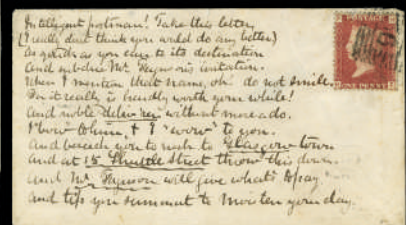 Intelligent postman! Take this letter
(I really don't think you would do any better)
As quick as you can to its destination
And subdue Mr. Ferguson's
When I mention that name, oh! do not smile.
For it really is hardly worth your while!
And noble "deliv'rer" without more ado.
I "vow" to you.
And beseech you to rush to Glasgow town
And at 15 Shuttle Street throw this down.
And Mr. Ferguson will give what's to pay
And tip you summut to moisten your clay.
ONE PENNY